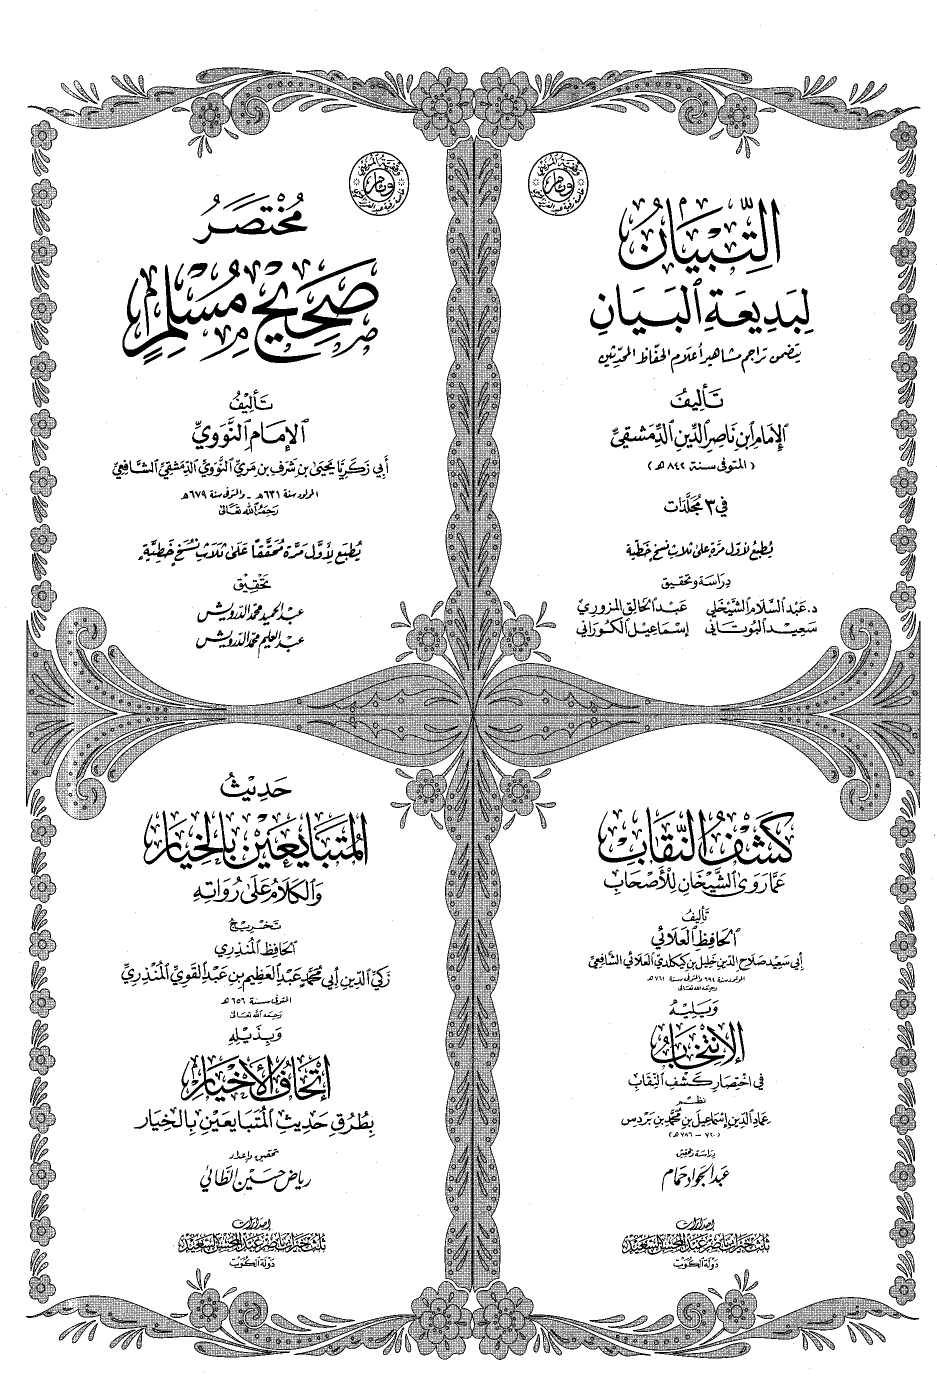 التِّبْيَانُ
لِبَدِيعَةِ البَيَانِ
يتضمن تراجم مشاهير أعلام الحفّاظ المحدّثين
تَأليفُ
الإمَام ابْن نَاصِر الدِّين الدِّمَشقِيِّ
(المتوفى سنة ٨٤٢ هـ)
في ٣ مُجَلّدَات
يُطبَع لأوّل مَرَّة على ثلاث نسخ خَطّيّة
دِرَاسَة وتحقيق
د. عَبْد السَّلَام الشَّيخلي عَبد الخَالِق المزوري
سَعيد البُوتَاني إسمَاعيل الكوراني
مُخْتَصَرُ
صَحِيحِ مُسْلِمٍ
تَأليفُ
الإمَام النَّوَويِّ
أَبي زكَريَّا يَحيَى بن شَرَف بن مري النَّوَويّ الدِّمَشقيِّ الشَّافِعيِّ
المولود سنة ٦٣١ هـ - والمتوفى سنة ٦٧٩ هـ
رَحِمَهُ الله تعَالى
يُطبَع لأوَّل مَرَّة مُحَقَّقًا عَلَى ثَلَاثِ نُسَخٍ خَطِّيَّةٍ
تحقيق
عبد الحميد محمد الدرويش
عبد العليم محمد الدرويش
كَشْفُ النِّقَابِ
عَمَّا رَوَى الشَّيْخَانِ لِلأَصْحَابِ
تأليفُ
الحَافِظ العَلَائي
أبي سَعيد صَلاح الدين خَليل بن كيكلدي العَلَائي الشَّافِعيّ
المولود سنة ٦٩٤ والمتوفى سنة ٧٦١ هـ
رحمه الله تعالى
وَيَليْهُ
الإِنْتِخَابُ
في اخْتِصَار كَشْفِ النِّقَاب
نظم
عمَاد الدِّين إسْمَاعيل بن مُحمَّد بن بَردِس
(٧٢٠ - ٧٨٦ هـ)
دراسة وتحقيق
عَبد الجَواد حمَام
إصدَارات
دَولة الكويت
حَدِيثُ
المُتَبَايِعَيْنِ بِالخِيَارِ
وَالكَلَامُ عَلَى رُوَاتِهِ
تَخريجُ
الحَافِظ المُنذِري
زَكيّ الدِّين أبي مُحَمَّد عَبد العَظيم بن عَبد القَويّ المُنذِريّ
المتوفى سنة ٦٥٦ هـ
رَحِمَه الله تعَالى
وَبذَيْلِهِ
إتْحَافُ الأَخْيَارِ
بِطُرُقِ حَدِيثِ المُتَبَايِعَيْنِ بِالخِيَارِ
تحقيق وإعداد
رياض حسين الطائي
إصدَارات
دَولة الكويت